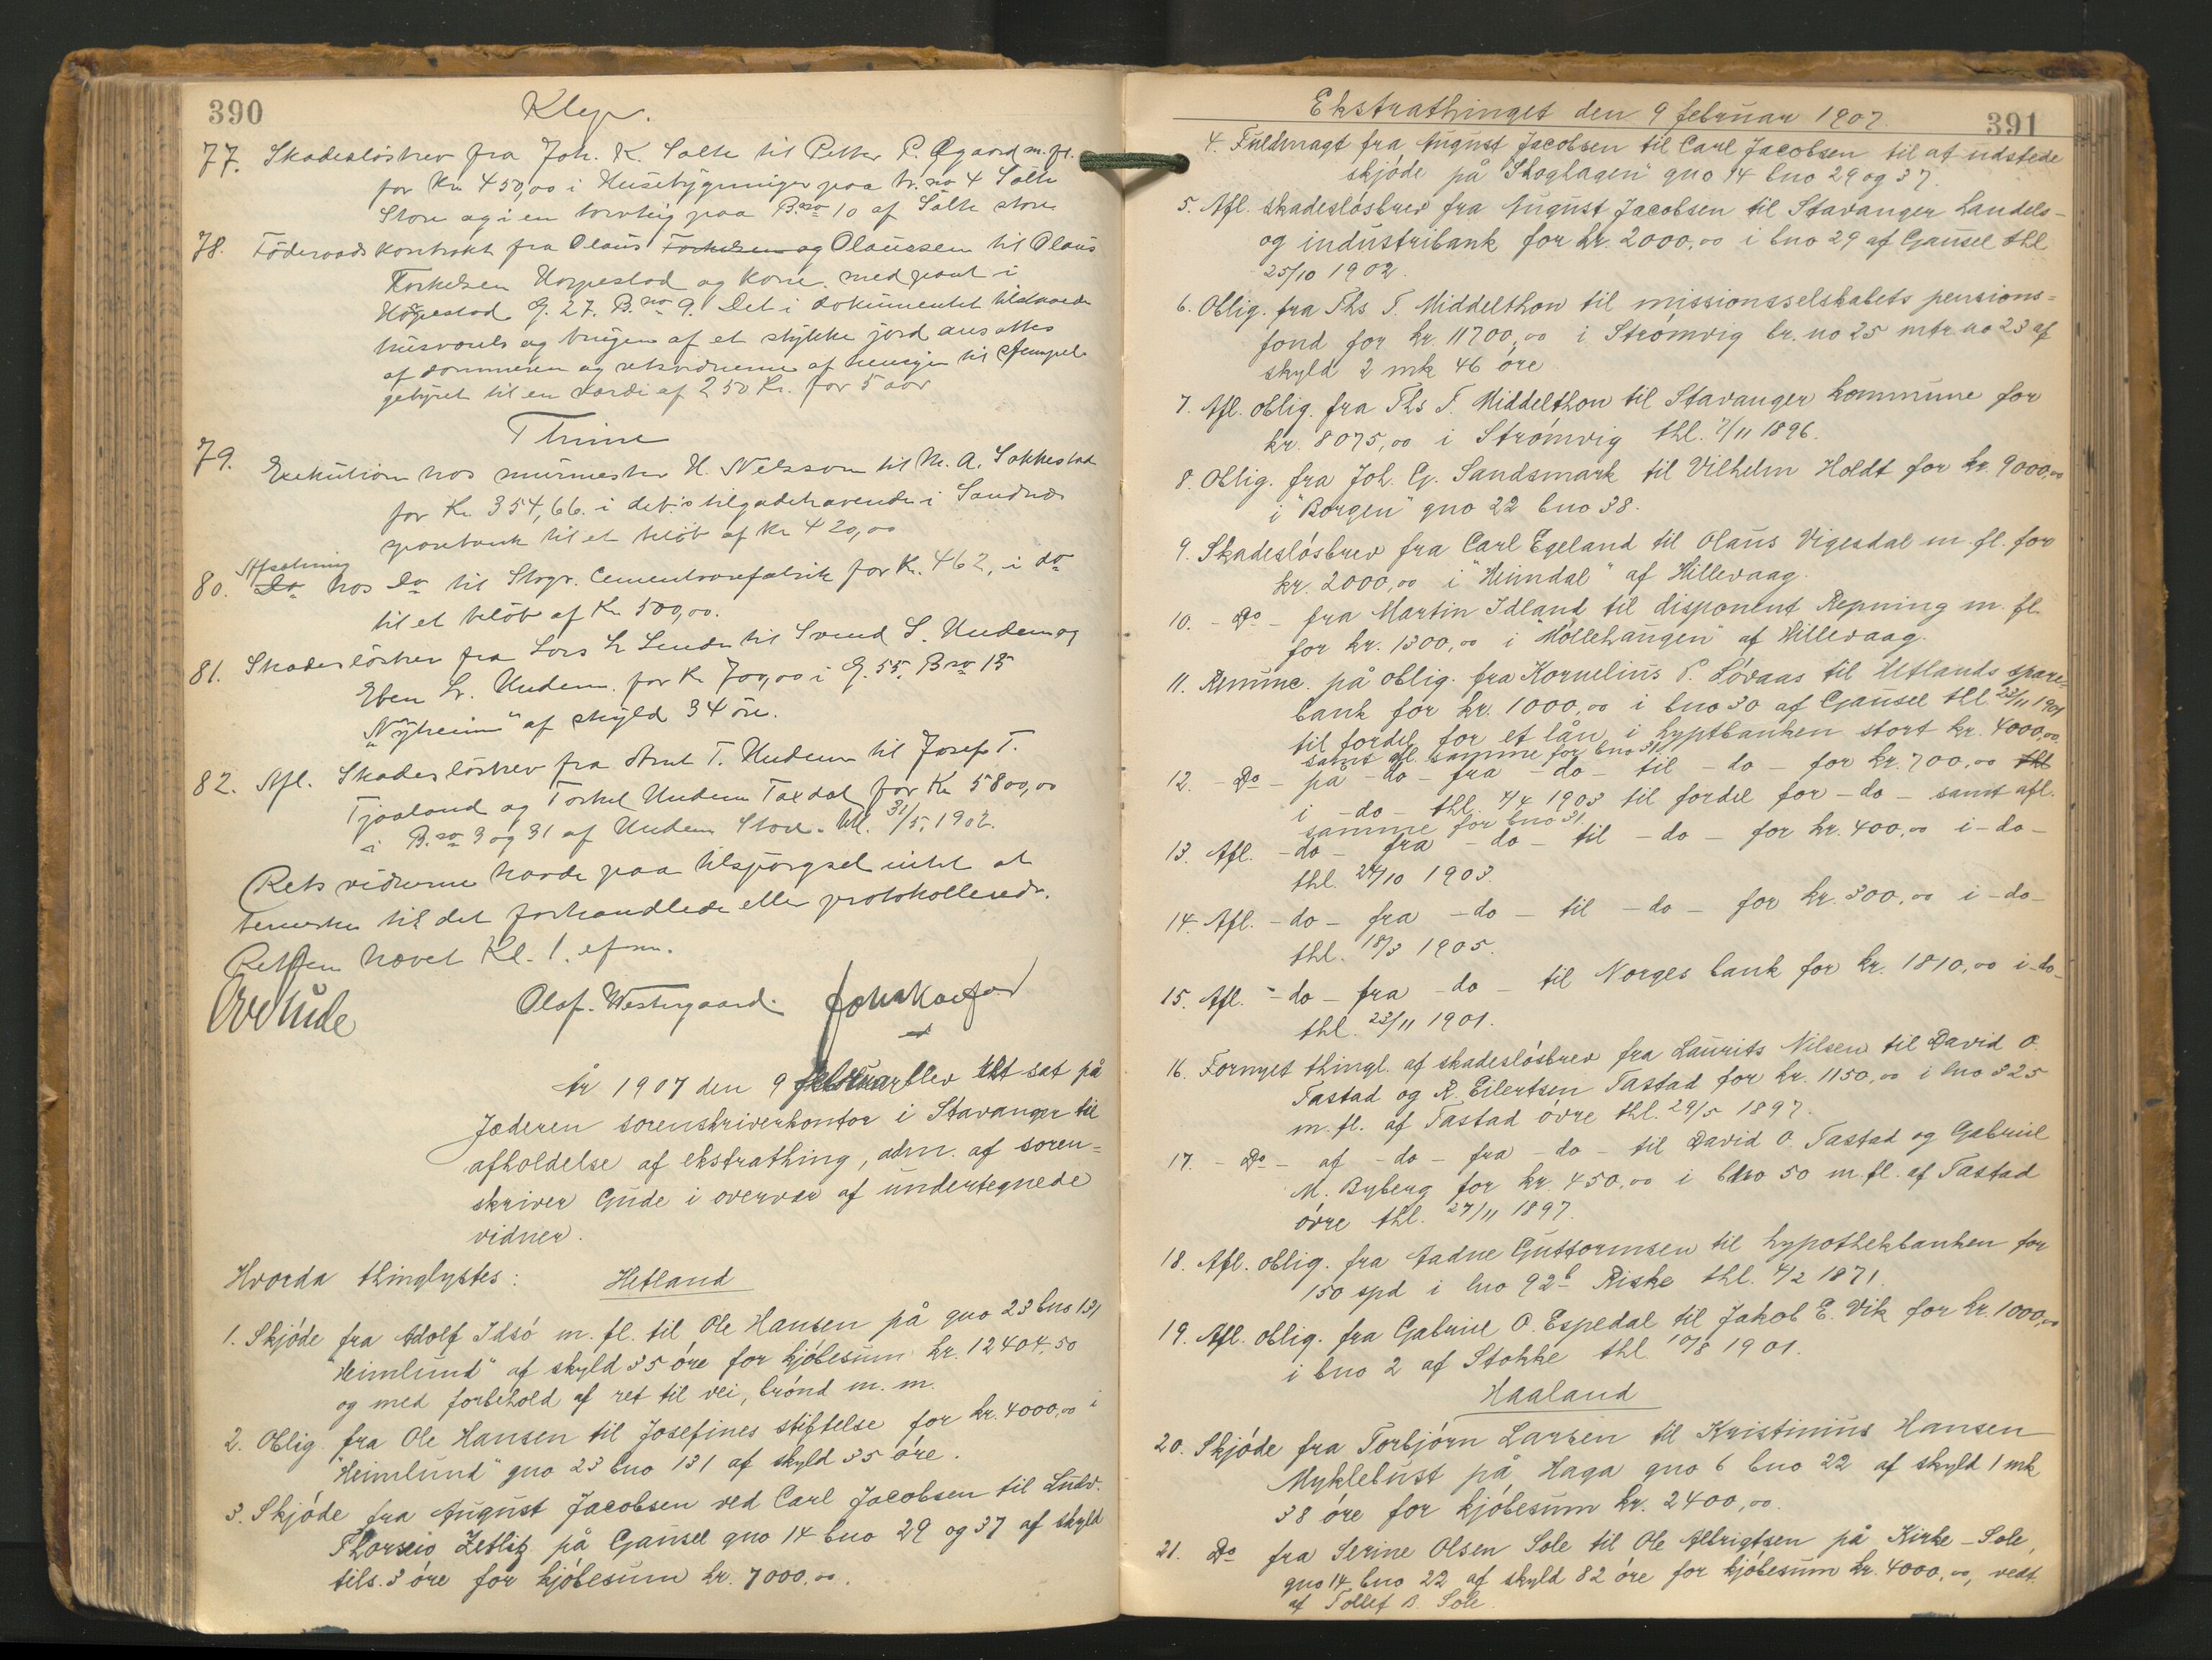 390
Klep.
77. Skadesløsbrev fra Joh. K. Salte til Petter P. Øgaard m. fl.
for Kr. 450,00 i Husebygninger paa br. no 4 Salte
Store og i en torvteig paa B.no 10 af Salte store
78. Föderaadskontrakt fra Olaus Torkelsen og Olaussen til Olaus
Torkelsen Horpestad og Kone med pant i
Horpestad G. 27. B.no 9. Det i dokumentet tilstaaede
husværels og brugen af et stykke jord ansattes
af dommeren og retsvidnerne af hensyn til stempel-
gebyret til en værdi af 250 Kr. for 5 aar
Thime
79. Exekution hos murmester H. Nelsson til M. A. Sokkestad
for Kr. 354,66. i det's tilgodehavende i Sandnæs
sparebank til et beløb af Kr 420,00
Afsetning
80. Do hos Do til Stvgr. Cementvarefabrik for Kr. 462, i do
til et beløb af Kr 500,00.
81. Skadesløsbrev fra Lars L. Lende til Svend S. Undem og
Eben Sv. Undem for Kr 700,00 i G. 55, Bno 15
"Nyheim" af skyld 34 øre.
82. Afl. Skadesløsbrev fra Arnt T. Undem til Josef T.
Tjaaland og Torkel Undem Taxdal for Kr 5800,00
i B.no 3 og 31 af Undem Store. thl. 31/5. 1902.
Retsvidnerne havde paa tilspørgsel intet at
bemerke til det forhandlede eller protokollerede.
Retten hævet Kl. 1. efm.
Ove Gude Olaf. Westergaard.
År 1907 den 9 februar blev ret sat på
Jæderen sorenskriverkontor i Stavanger til
afholdelse af ekstrathing, adm. af soren=
skriver Gude i overvær af undertegnede
vidner.
Hvorda thinglystes: Hetland
1. Skjöde fra Adolf Idsö m. fl. til Ole Hansen på gno 23 bno 131
"Heimlund" af skyld 35 öre for kjöbesum kr. 12404.50
og med forbehold af ret til vei, brönd m. m.
2. Oblig. fra Ole Hansen til Josefines stiftelse for kr. 4000,00 i
"Heimlund" gno 23 bno 131 af skyld 35 öre.
3. Skjöde fra August Jacobsen ved Carl Jacobsen til Ludv.
Zetlitz på Gausel gno 14 bno 29 og 37 af skyld
tils. 3 öre for kjöbesum kr. 7000,00.
Ekstrathinget den 9 februar 1907. 391
4. Fuldmagt fra August Jacobsen til Carl Jacobsen til at udstede
skjöde på "Skoghagen" gno 14 bno 29 og 37.
5. Afl. skadeslösbrev fra August Jacobsen til Stavanger handels-
og industribank for kr. 2000,00 i bno 29 af Gausel thl.
25/10 1902.
6. Oblig. fra Ths T. Middelthon til missionsselskabets pensions=
fond for kr. 11700,00 i Strömvig br. no 25 mtr. no 23 af
skyld 2 mk 46 öre
7. Afl. oblig. fra Ths T. Middelthon til Stavanger kommune for
kr. 8075,00 i Strömvig thl. 7/11 1896.
8. Oblig. fra Joh. G. Sandsmark til Vilhelm Holdt for kr. 9000,00
i "Borgen" gno 22 bno 38.
9. Skadeslösbrev fra Carl Egeland til Olaus Vigesdal m. fl. for
kr. 2000,00 i "Heimdal" af Hillevaag.
10. - Do - fra Martin Idland til disponent Repning m. fl.
for kr. 1300,00 i "Möllehaugen" af Hillevaag.
11. Renunc. på oblig. fra Kornelius P. Lövaas til Hetlands spare=
bank for kr. 1000,00 i bno 30 af Gausel thl. 23/11 1901
til fordel for et lån i hyptbanken stort kr. 4000,00
samt afl. samme for bno 31.
12. - Do - på - do - fra - do - til - do - for kr. 700,00 thl
i - do - thl. 4/4 1903 til fordel for - do - samt afl.
samme for bno 31.
13. Afl. - do - fra - do - til - do - for kr. 400,00 i - do -
thl. 24/10 1903.
14. Afl. - do - fra - do - til - do - for kr. 300,00 i - do -
thl. 18/3 1905.
15. Afl. - do - fra - do - til Norges bank for kr. 1810,00 i - do -
thl. 23/11 1901.
16. Fornyet thingl. af skadeslösbrev fra Laurits Nilsen til David O.
Tastad og R. Eilertsen Tastad for kr. 1150,00 i bno 325
m. fl. af Tastad övre thl. 29/5 1897.
17. - Do - af - do - fra - do - til David O. Tastad og Gabriel
M. Byberg for kr. 450,00 i bno 50 m. fl. af Tastad
övre thl. 27/11 1897.
18. Afl. oblig. fra Aadne Guttormsen til hypothekbanken for
150 spd i lno 92b Riske thl. 4/2 1871.
19. Afl. oblig. fra Gabriel O. Espedal til Jakob E. Vik for kr. 1000,00
i bno 2 af Stokke thl. 10/8 1901.
Haaland
20. Skjöde fra Torbjörn Larsen til Kristinius Hansen
Myklebust på Haga gno 6 bno 22 af skyld 1 mk
38 öre for kjöbesum kr. 2400,00.
21. Do fra Serine Olsen Sole til Ole Albrigtsen på Kirke-Sole,
gno 14 bno 22 af skyld 82 öre for kjöbesum kr. 4000,00, vedt.
af Tollef B. Sole.